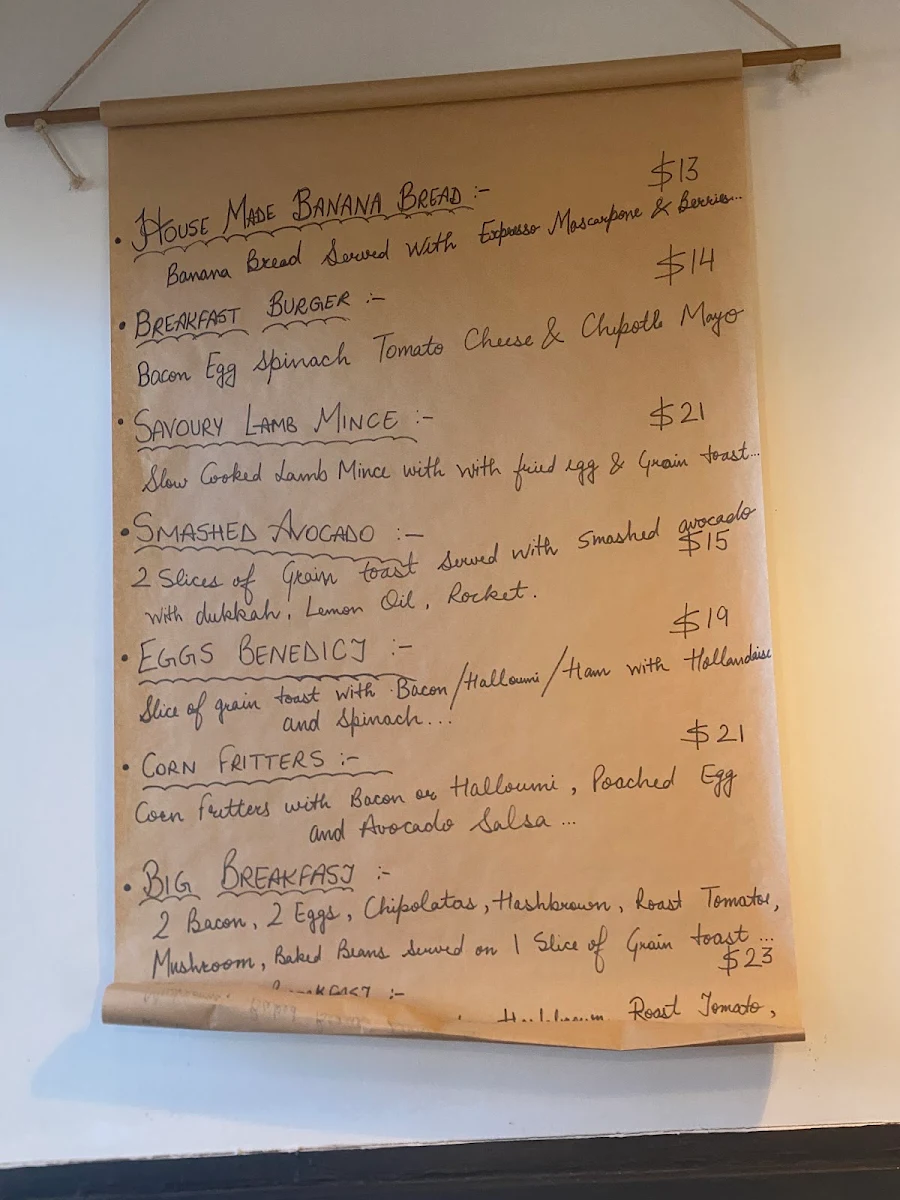 $13
• House Made Banana Bread :-
Banana Bread Served With Expresso Mascarpone & Berries...
$14
• Breakfast Burger :-
Bacon Egg Spinach Tomato Cheese & Chipotle Mayo
• Savoury Lamb Mince :- $21
Slow Cooked Lamb Mince with with fried egg & Grain toast...
• Smashed Avocado :-
2 Slices of Grain toast served with smashed avocado
$15
with dukkah, Lemon Oil, Rocket.
$19
• Eggs Benedict :-
Slice of grain toast with Bacon/Halloumi/Ham with Hollandaise
and Spinach...
$21
• Corn Fritters :-
Corn Fritters with Bacon or Halloumi, Poached Egg
and Avocado Salsa ...
• Big Breakfast :-
2 Bacon, 2 Eggs, Chipolatas, Hashbrown, Roast Tomatoe,
Mushroom, Baked Beans served on 1 Slice of Grain toast ...
$23
:-
Roast Tomato,